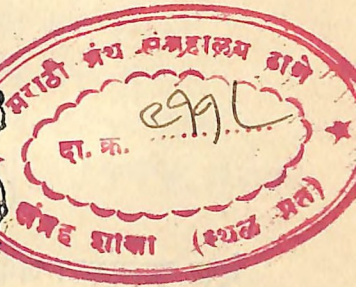 मराठी ग्रंथ संग्रहालय ठाणे
दा. क्र. ९११८
संग्रह शाखा (स्थळ प्रत)